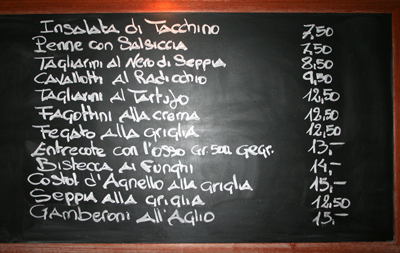 Insalata di Tacchino 7,50
Penne con Salsiccia 7,50
Tagliarini al Nero di Seppia 8,50
Cavallotti al Radicchio 9,50
Tagliarini al Tartufo 12,50
Fagottini alla crema 12,50
Fegato alla griglia 12,50
Entrecote con l'osso gr.500 gegr. 13,-
Bistecca ai Funghi 14,-
Costol d'Agnello alla griglia 15,-
Seppia alla griglia 12,50
Gamberoni all'Aglio 15,-